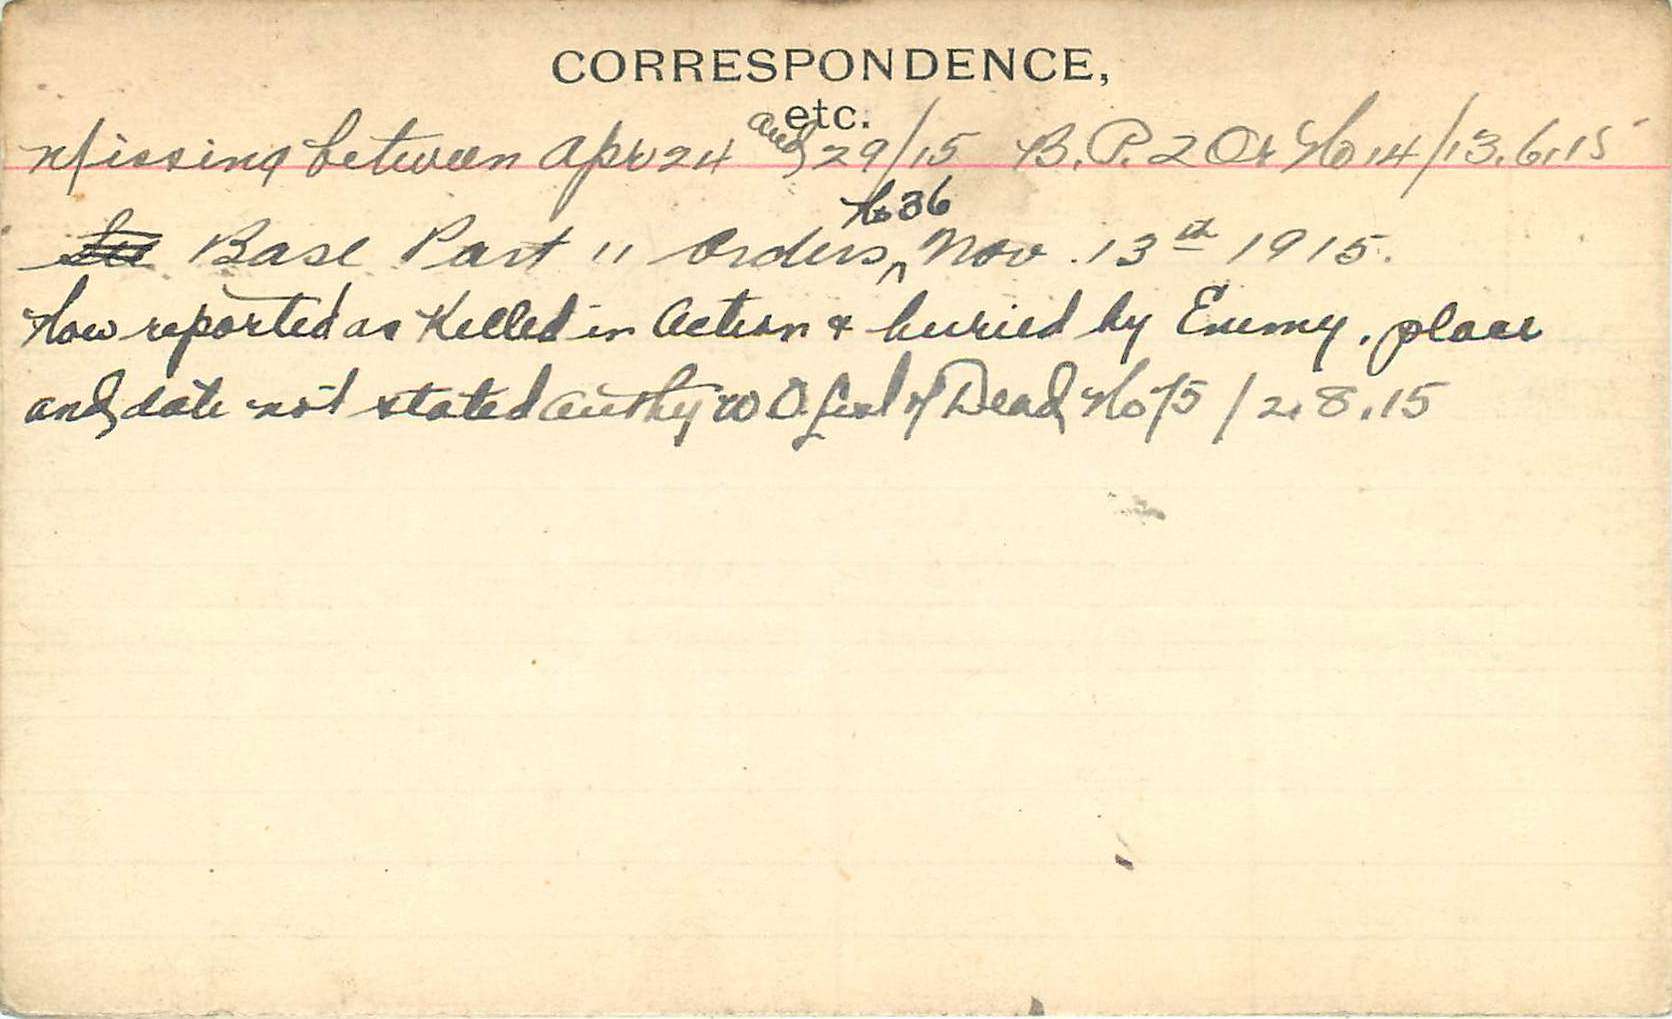 CORRESPONDENCE,
etc.
Missing between Apr 24 and 29/15 B.P. 2 Or No 14/13.6.15
See Base Part 11 Orders No 36 Nov. 13th 1915.
Now reported as Killed in Action & buried by Enemy, place
and date not stated Authy W O. List of Dead No 75/2.8.15